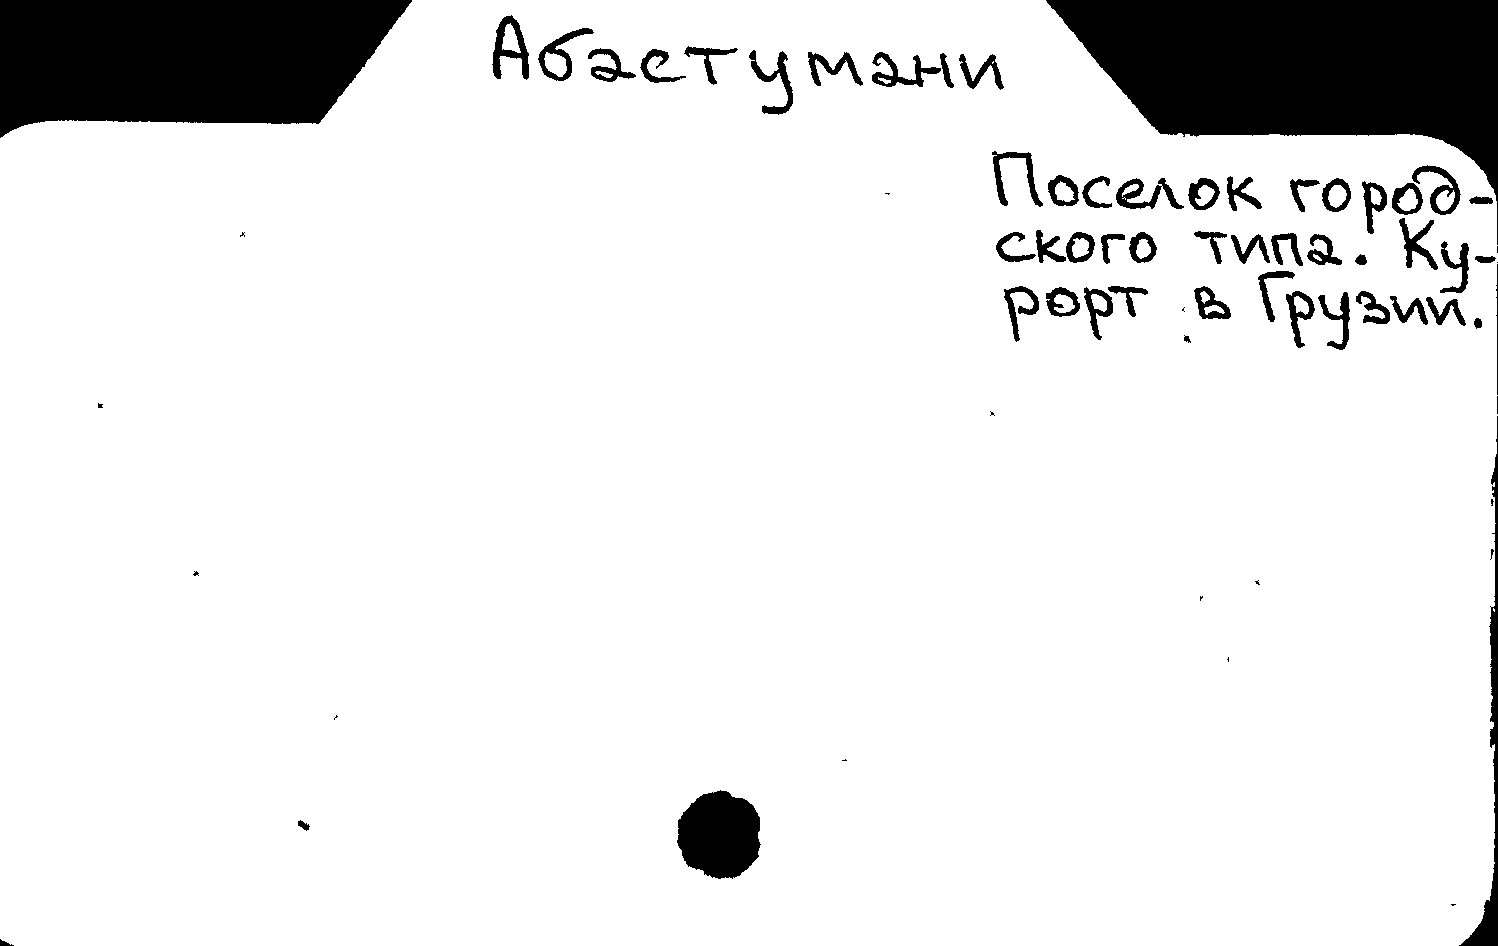 Абастумани
Поселок город-
ского типа. Ку-
рорт в Грузии.